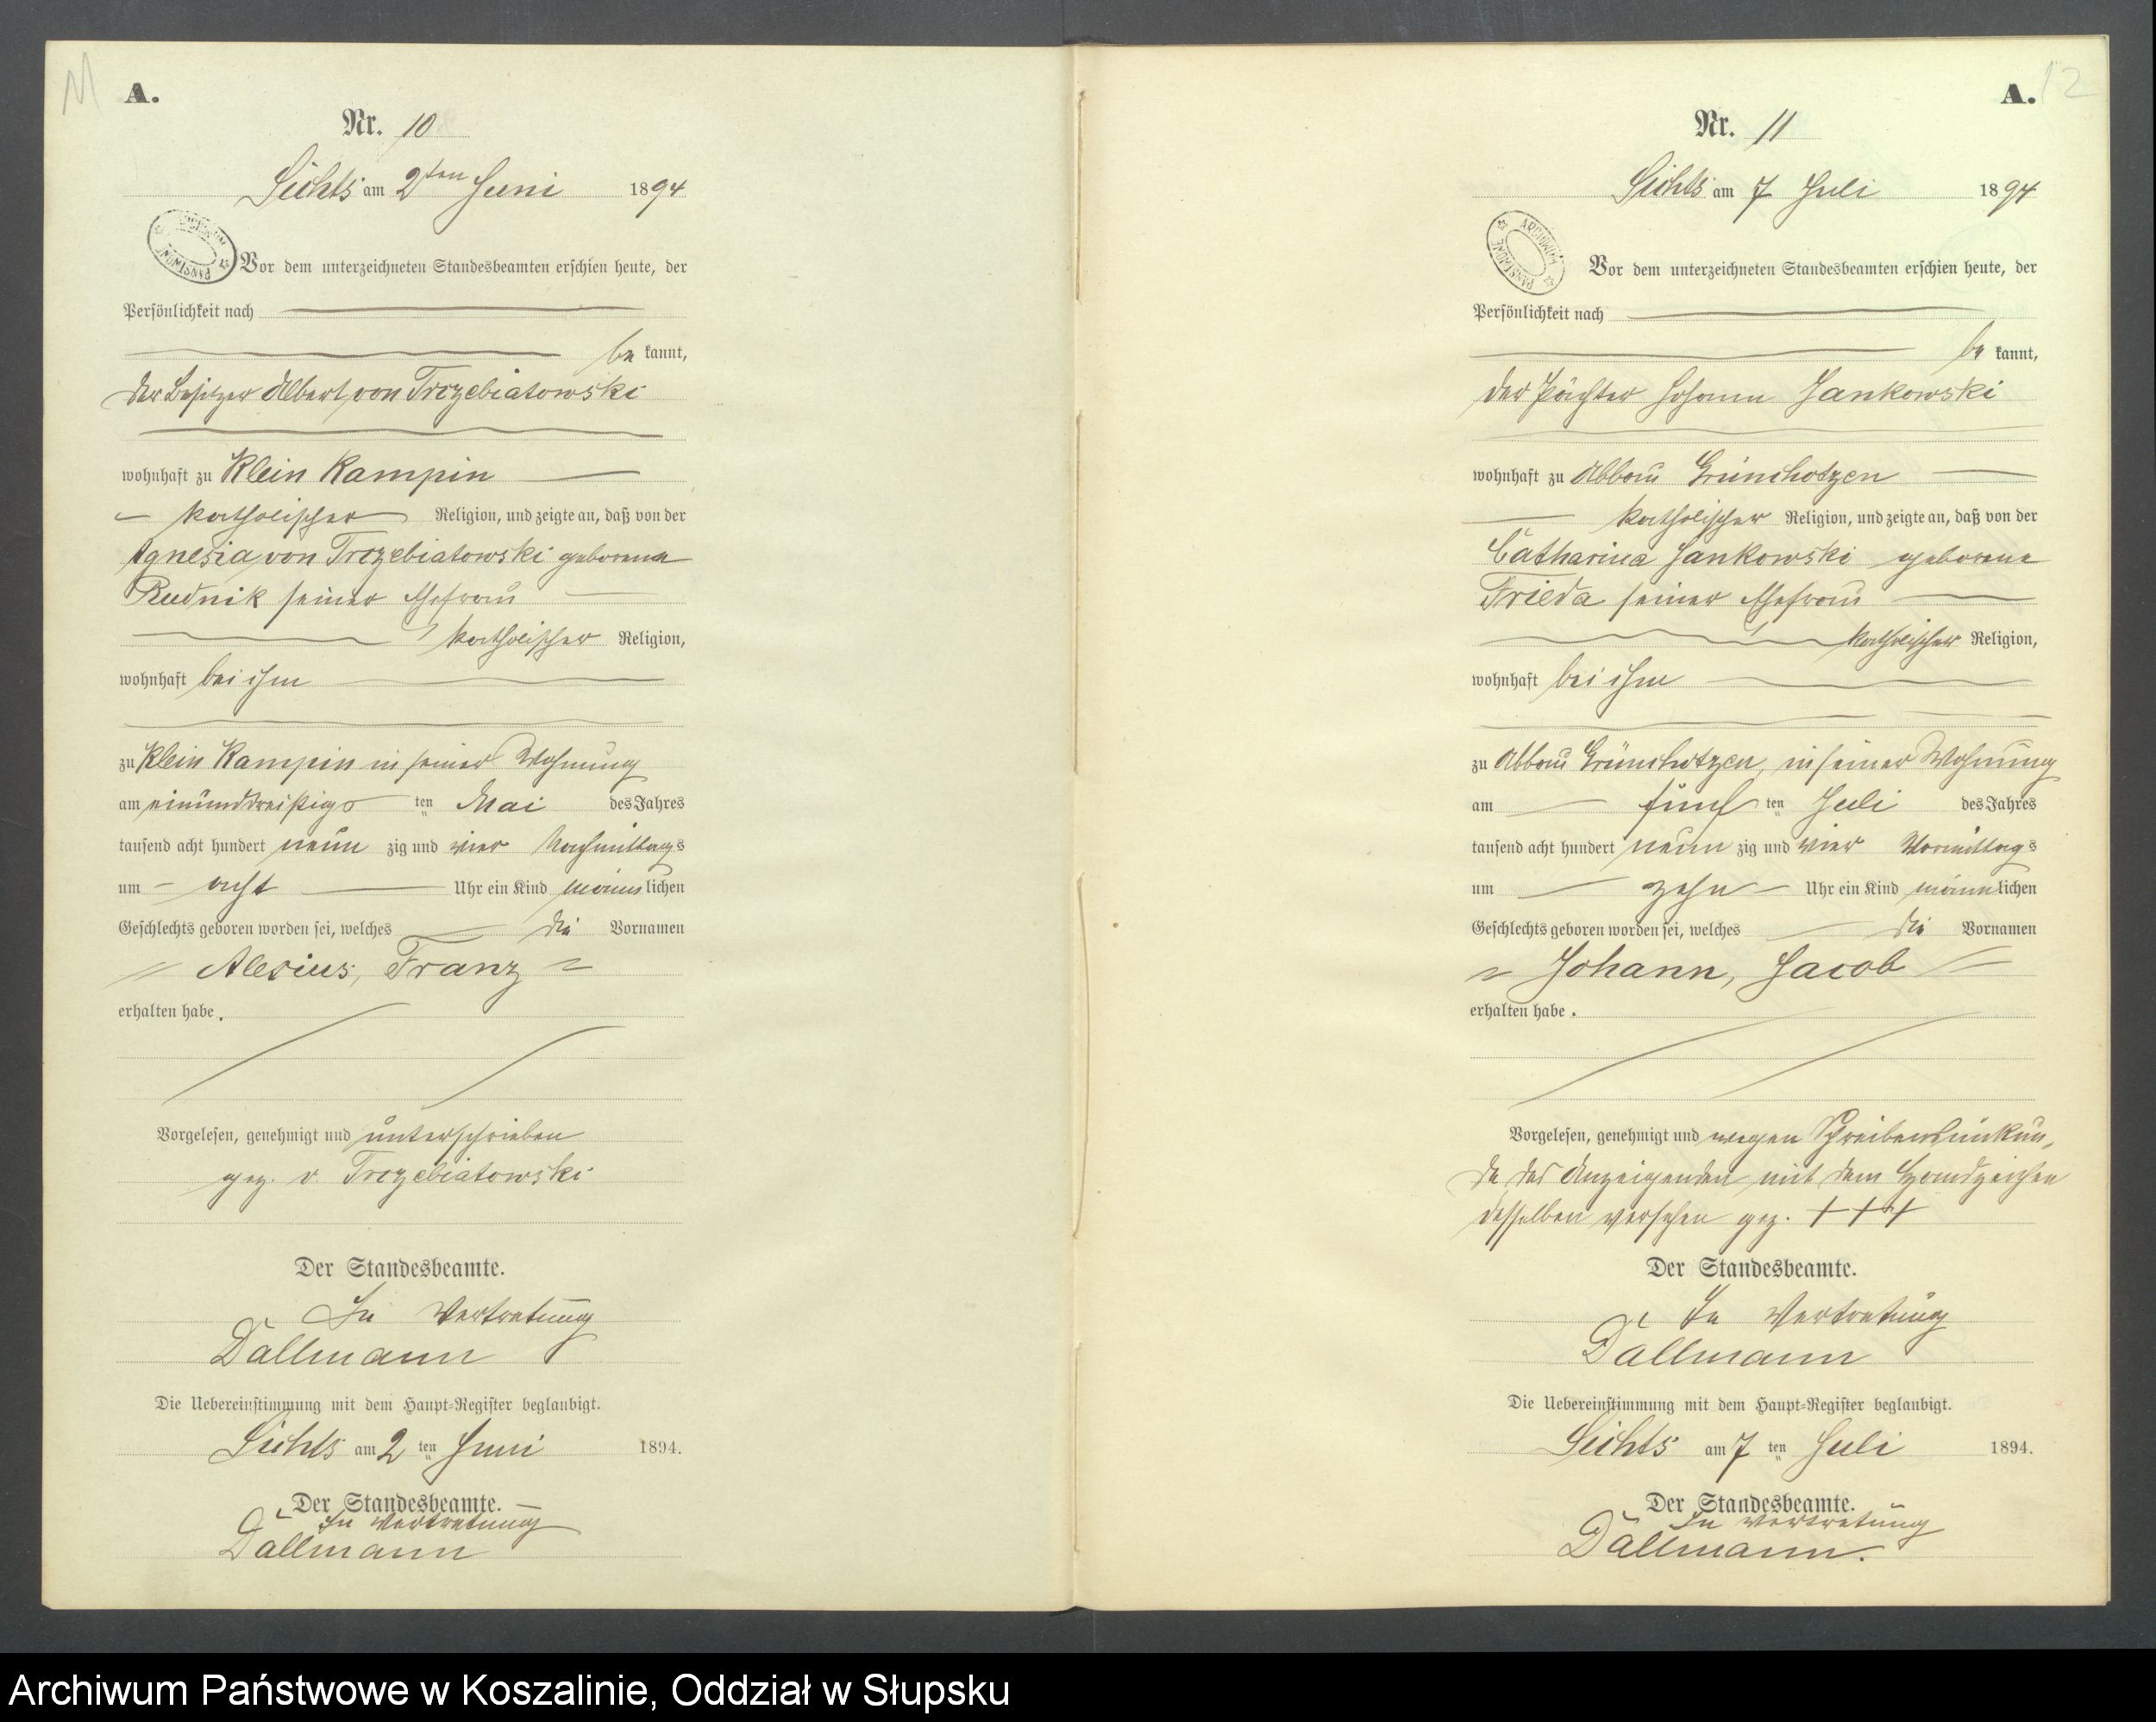 A.
Nr. 10
Lichts am 2ten Juni 1894
Vor dem unterzeichneten Standesbeamten erschien heute, der
Persönlichkeit nach
be kannt,
der Besitzer Albert von Trczebiatowski
wohnhaft zu Klein Kampin
katholischer Religion, und zeigte an, daß von der
Agnesia von Trczebiatowski geborene
Rudnik seiner Ehefrau
katholischer Religion,
wohnhaft bei ihm
zu Klein Kampin in seiner Wohnung
am einunddreißigs ten Mai des Jahres
tausend acht hundert neun zig und vier Nachmittags
um acht Uhr ein Kind männlichen
Geschlechts geboren worden sei, welches die Vornamen
Alexius, Franz
erhalten habe.
Vorgelesen, genehmigt und unterschrieben
gez. v Trczebiatowski
Der Standesbeamte.
In Vertretung
Dallmann
Die Uebereinstimmung mit dem Haupt-Register beglaubigt.
Lichts am 2 ten Juni 1894.
Der Standesbeamte.
In Vertretung
Dallmann
12
A.
Nr. 11
Lichts am 7 Juli 1894
ARCHIWUM PAŃSTWOWE
Vor dem unterzeichneten Standesbeamten erschien heute, der
Persönlichkeit nach
be kannt,
der Pächter Johann Jankowski
wohnhaft zu Abbau Grünchotzen
katholischer Religion, und zeigte an, daß von der
Catharina Jankowski geborene
Frieda seiner Ehefrau
katholischer Religion,
wohnhaft bei ihm
zu Abbau Grünchotzen, in seiner Wohnung
am fünf ten Juli des Jahres
tausend acht hundert neun zig und vier Vormittags
um zehn Uhr ein Kind männlichen
Geschlechts geboren worden sei, welches die Vornamen
Johann, Jacob
erhalten habe.
Vorgelesen, genehmigt und wegen Schreibensunkun-
de des Anzeigenden mit dem Handzeichen
desselben versehen gez. +++
Der Standesbeamte.
In Vertretung
Dallmann
Die Uebereinstimmung mit dem Haupt-Register beglaubigt.
Lichts am 7 ten Juli 1894.
Der Standesbeamte.
In Vertretung
Dallmann.
Archiwum Państwowe w Koszalinie, Oddział w Słupsku